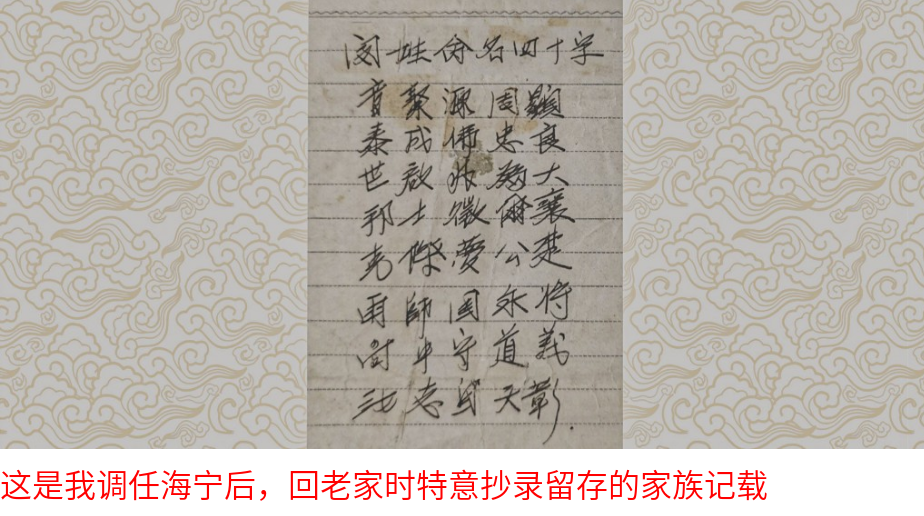 闵姓命名四十字
聚源周顯
泰成佛忠良
世啟兆 大
邦士徵爾襄
傑夢公楚
再師国永将
尚中守道義
志 天彰
这是我调任海宁后，回老家时特意抄录留存的家族记载